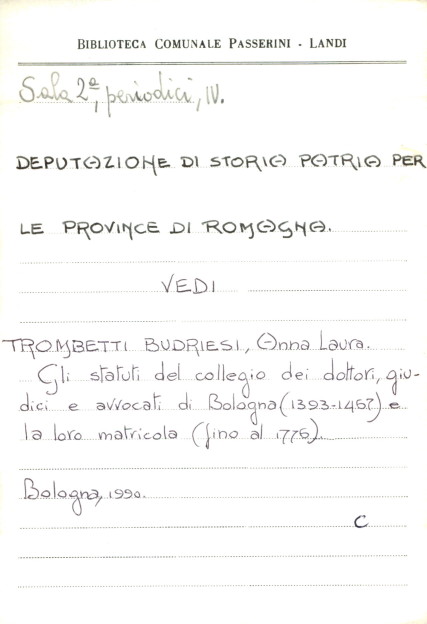 BIBLIOTECA COMUNALE PASSERINI - LANDI
Sala 2ª, periodici, IV.
DEPUTAZIONE DI STORIA PATRIA PER
LE PROVINCE DI ROMAGNA.
VEDI
TROMBETTI BUDRIESI, Anna Laura.
Gli statuti del collegio dei dottori, giu-
dici e avvocati di Bologna (1393-1467) e
la loro matricola (fino al 1776).
Bologna, 1990.
C